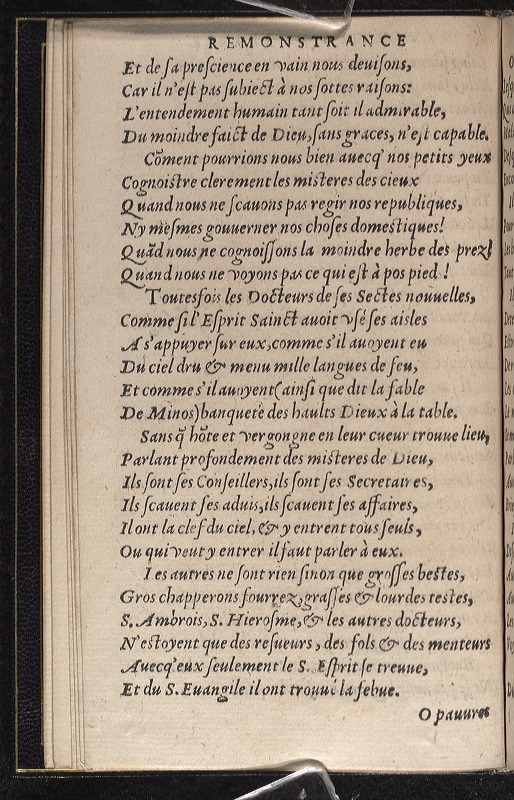 REMONSTRANCE
Et de ſa preſcience en vain nous deuiſons,
Car il n'eſt pas ſubiect à nos ſottes raiſons:
L'entendement humain tant ſoit il admirable,
Du moindre faict de Dieu, ſans graces, n'eſt capable.
Cõment pourrions nous bien auecq' nos petits yeux
Cognoiſtre clerement les miſteres des cieux
Quand nous ne ſcauons pas regir nos republiques,
Ny meſmes gouuerner nos choſes domeſtiques!
Quãd nous ne cognoiſſons la moindre herbe des prez!
Quand nous ne voyons pas ce qui eſt à pos pied!
Toutesfois les Docteurs de ſes Sectes nouuelles,
Comme ſi l'Eſprit Sainct auoit vſé ſes aiſles
A s'appuyer ſur eux, comme s'il auoyent eu
Du ciel dru & menu mille langues de feu,
Et comme s'il auoyent (ainſi que dit la fable
De Minos) banqueté des haults Dieux à la table.
Sans q̃ hõte et vergongne en leur cueur trouue lieu,
Parlant profondement des miſteres de Dieu,
Ils ſont ſes Conſeillers, ils ſont ſes Secretaires,
Ils ſcauent ſes aduis, ils ſcauent ſes affaires,
Il ont la clef du ciel, & y entrent tous ſeuls,
Ou qui veut y entrer il faut parler à eux.
Les autres ne ſont rien ſinon que groſſes beſtes,
Gros chapperons fourrez, graſſes & lourdes teſtes,
S. Ambrois, S. Hieroſme, & les autres docteurs,
N'eſtoyent que des reſueurs, des fols & des menteurs
Auecq' eux ſeulement le S. Eſprit ſe treuue,
Et du S. Euangile il ont trouué la febue.
O pauures